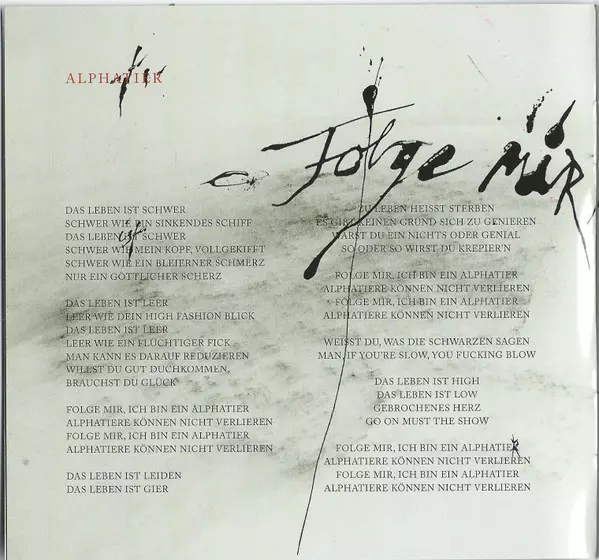 ALPHATIER
Folge MiR
DAS LEBEN IST SCHWER
SCHWER WIE EIN SINKENDES SCHIFF
DAS LEBEN IST SCHWER
SCHWER WIE MEIN KOPF, VOLLGEKIFFT
SCHWER WIE EIN BLEIERNER SCHMERZ
NUR EIN GÖTTLICHER SCHERZ
DAS LEBEN IST LEER
LEER WIE DEIN HIGH FASHION BLICK
DAS LEBEN IST LEER
LEER WIE EIN FLÜCHTIGER FICK
MAN KANN ES DARAUF REDUZIEREN
WILLST DU GUT DUCHKOMMEN,
BRAUCHST DU GLÜCK
FOLGE MIR, ICH BIN EIN ALPHATIER
ALPHATIERE KÖNNEN NICHT VERLIEREN
FOLGE MIR, ICH BIN EIN ALPHATIER
ALPHATIERE KÖNNEN NICHT VERLIEREN
DAS LEBEN IST LEIDEN
DAS LEBEN IST GIER
ZU LEBEN HEISST STERBEN
ES GIBT KEINEN GRUND SICH ZU GENIEREN
WARST DU EIN NICHTS ODER GENIAL
SO ODER SO WIRST DU KREPIER'N
FOLGE MIR, ICH BIN EIN ALPHATIER
ALPHATIERE KÖNNEN NICHT VERLIEREN
FOLGE MIR, ICH BIN EIN ALPHATIER
ALPHATIERE KÖNNEN NICHT VERLIEREN
WEISST DU, WAS DIE SCHWARZEN SAGEN
MAN, IF YOU'RE SLOW, YOU FUCKING BLOW
DAS LEBEN IST HIGH
DAS LEBEN IST LOW
GEBROCHENES HERZ
GO ON MUST THE SHOW
FOLGE MIR, ICH BIN EIN ALPHATIER
ALPHATIERE KÖNNEN NICHT VERLIEREN
FOLGE MIR, ICH BIN EIN ALPHATIER
ALPHATIERE KÖNNEN NICHT VERLIEREN